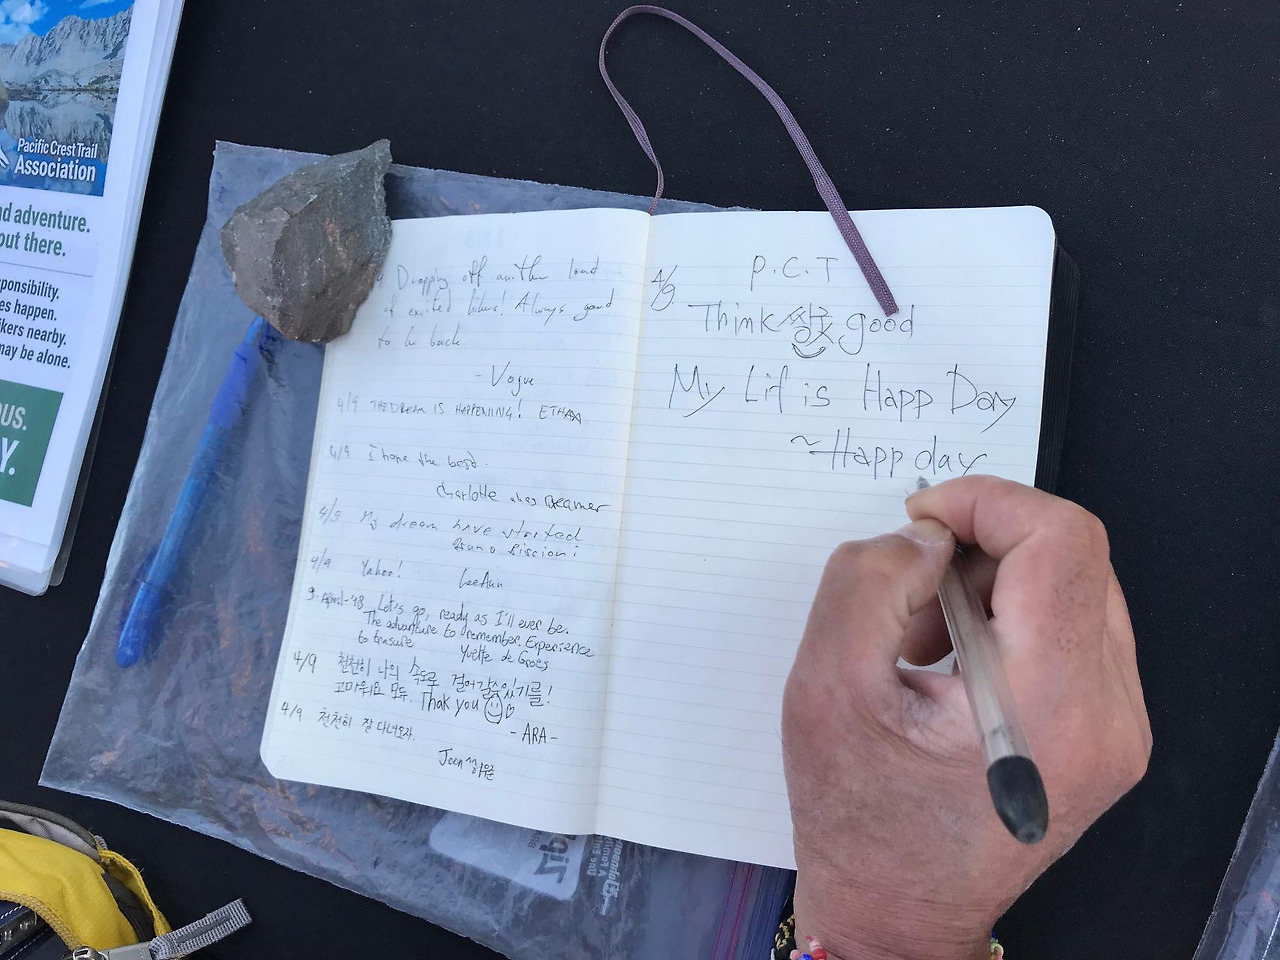 Pacific Crest Trail
Association
nd adventure.
out there.
ponsibility.
es happen.
kers nearby.
may be alone.
US.
Y.
Dropping off another load
of excited hikers! Always good
to be back.
- Vogue
4/9 THE DREAM IS HAPPENING! ETHAN
4/9 I hope the best.
Charlotte alias Dreamer
4/9 My dream have started
4/9 Yahoo! LeeAnn
9-April-'18 Let's go, ready as I'll ever be.
The adventure to remember. Experience
to treasure Yvette de Groes
4/9 천천히 나의 속도로 걸어갈수있기를!
고마워요 모두. Thak you
- ARA -
4/9 천천히 잘 다녀오자.
Joon
4/9 P.C.T
Think good
My Lif is Happ Day
~Happ day
Zipl